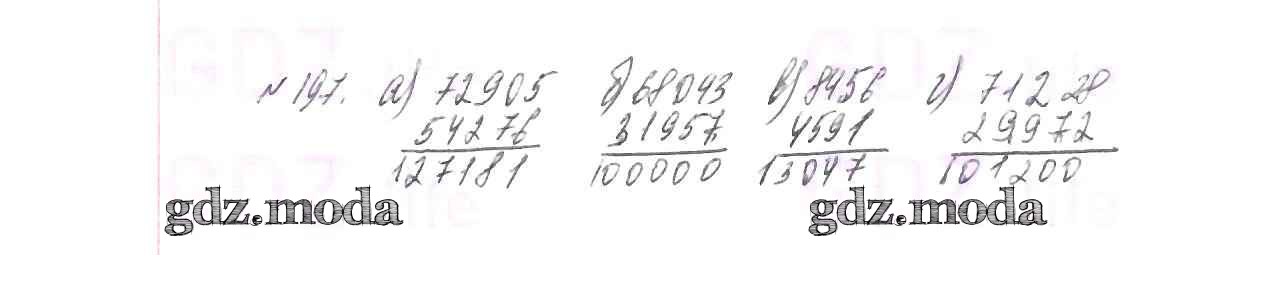 № 197. а) 72905 б) 68043 в) 8456 г) 71228
54276 31957 4591 29972
127181 100000 13047 101200
gdz.moda gdz.moda